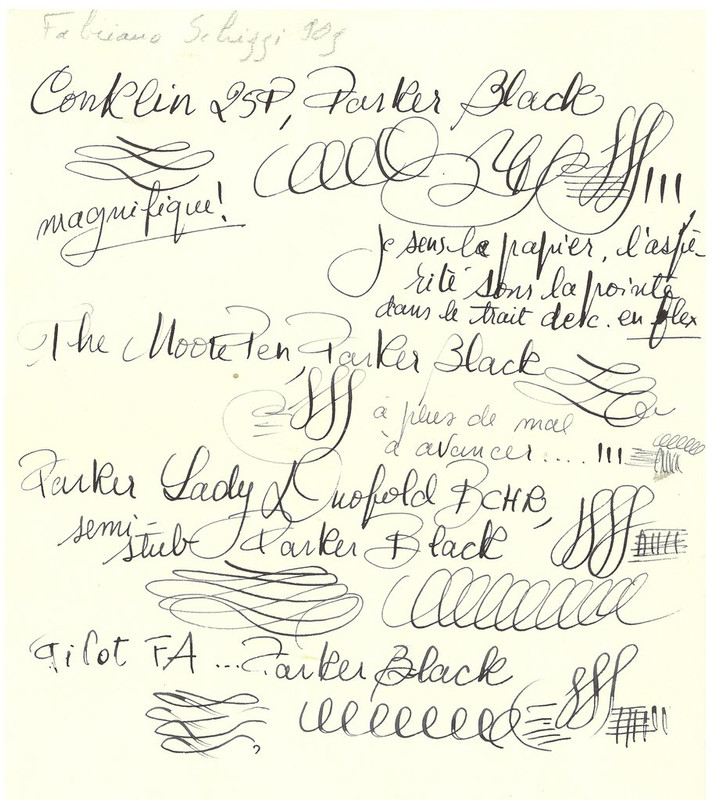 Fabriano Schizzi 90g
Conklin 25P, Parker Black
magnifique!
je sens la papier, l'aspé-
rité sous la pointe
dans le trait desc. en flex
The Moore Pen, Parker Black
à plus de mal
à avancer....
Parker Lady Duofold BCHR,
semi-
stub Parker Black
Pilot FA ... Parker Black